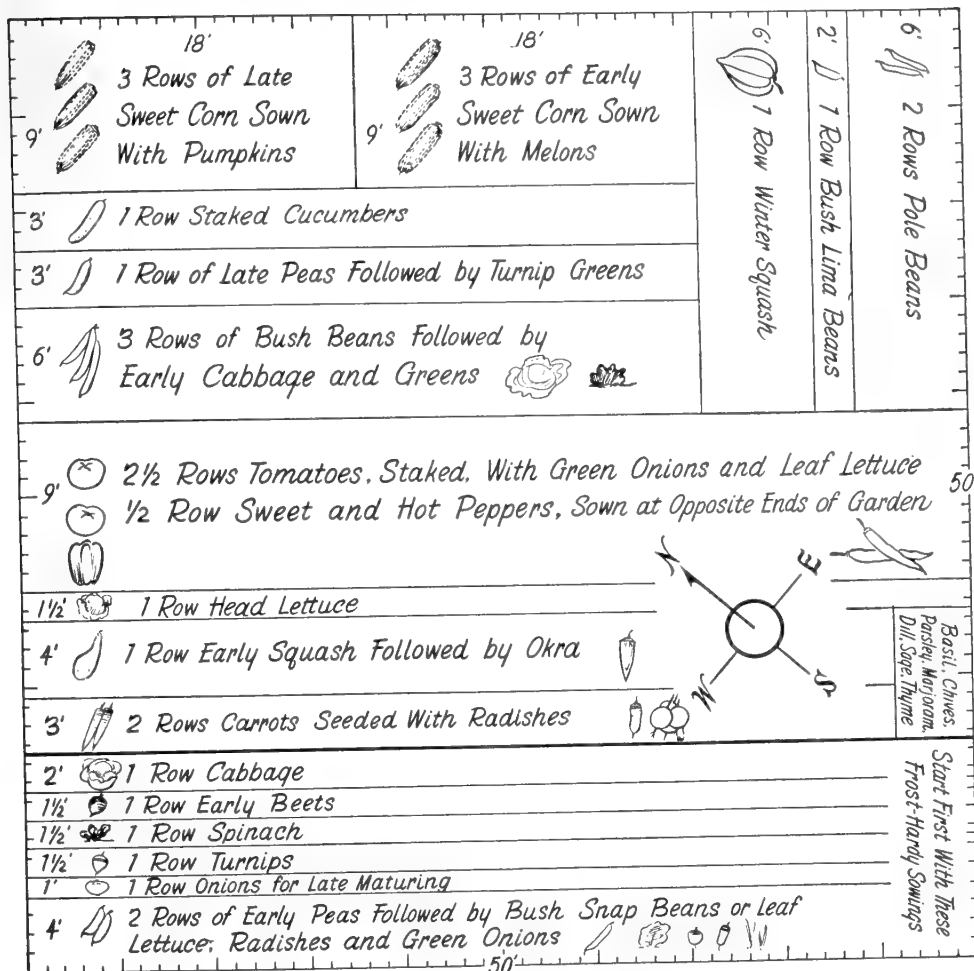 18'
9'
3 Rows of Late
Sweet Corn Sown
With Pumpkins
18'
9'
3 Rows of Early
Sweet Corn Sown
With Melons
6'
1 Row Winter Squash
2'
1 Row Bush Lima Beans
6'
2 Rows Pole Beans
3'
1 Row Staked Cucumbers
3'
1 Row of Late Peas Followed by Turnip Greens
6'
3 Rows of Bush Beans Followed by
Early Cabbage and Greens
9'
2½ Rows Tomatoes, Staked, With Green Onions and Leaf Lettuce
½ Row Sweet and Hot Peppers, Sown at Opposite Ends of Garden
50'
N
E
S
W
1½' 1 Row Head Lettuce
4' 1 Row Early Squash Followed by Okra
3' 2 Rows Carrots Seeded With Radishes
Basil, Chives,
Parsley, Marjoram,
Dill, Sage, Thyme
2' 1 Row Cabbage
1½' 1 Row Early Beets
1½' 1 Row Spinach
1½' 1 Row Turnips
1' 1 Row Onions for Late Maturing
4'
2 Rows of Early Peas Followed by Bush Snap Beans or Leaf
Lettuce, Radishes and Green Onions
Start First With These
Frost-Hardy Sowings
50'